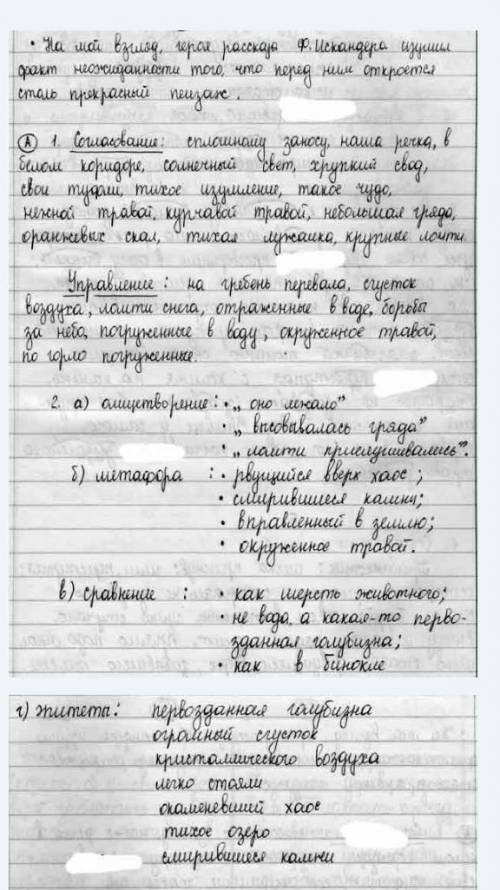 • На мой взгляд, героя рассказа Ф. Искандера изумил
факт неожиданности того, что перед ним откроется
столь прекрасный пейзаж.
А 1. Согласование: сплошному заносу, наша речка, в
белом коридоре, солнечный свет, хрупкий свод,
свои туфли, тихое изумление, такое чудо,
нежной травой, курчавой травой, небольшая гряда,
оранжевых скал, тихая лужайка, крупные ломти
Управление: на гребень перевала, сгусток
воздуха, ломти снега, отраженные в воде, борьбы
за небо, погруженные в воду, окруженное травой,
по горло погруженные.
2. а) олицетворение: • „оно лежало”
• „высовывалась гряда”
• „ломти прислушивались”.
б) метафора : • рвущийся вверх хаос;
• смирившиеся камни;
• вправленный в землю;
• окруженное травой.
в) сравнение : • как шерсть животного;
• не вода, а какая-то перво-
зданная голубизна;
• как в бинокле
г) эпитеты: первозданная голубизна
огромный сгусток
кристаллического воздуха
легко стояли
окаменевший хаос
тихое озеро
смирившиеся камни